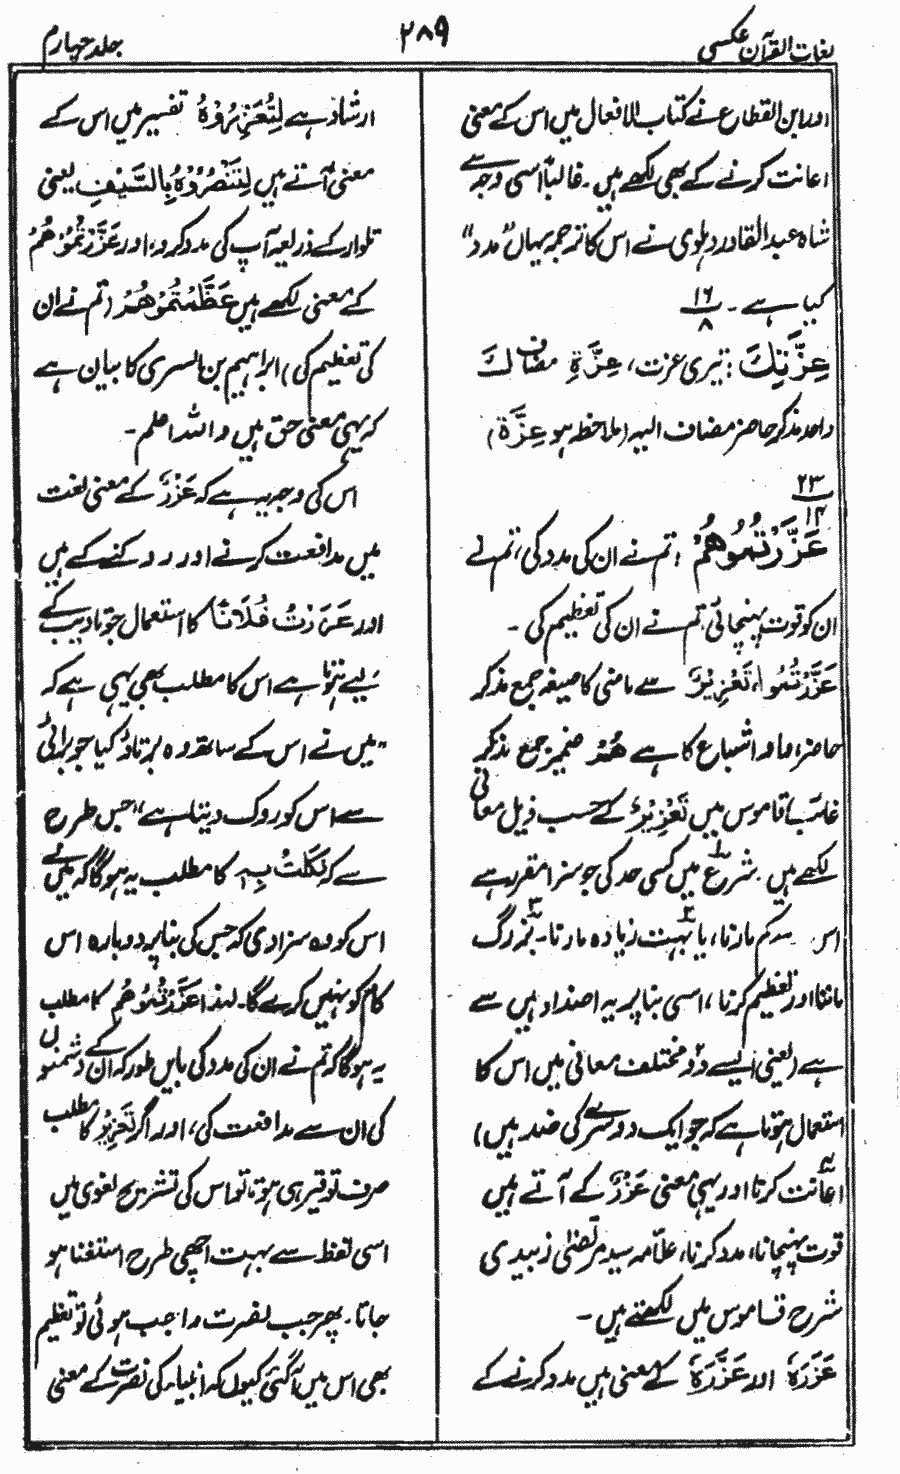 لغات القرآن عکسی
۲۸۹
جلد چہارم
اور ابن القطاع نے کتاب الافعال میں اس کے معنی
اعانت کرنے کے بھی لکھے ہیں۔ غالباً اسی وجہ سے
شاہ عبدالقادر دہلوی نے اس کا ترجمہ یہاں "مدد"
کیا ہے ۔ ۱۶/۸
عِزَّتِكَ : تیری عزت، عِزَّةِ مضاف كَ
واحد مذکر حاضر مضاف الیہ (ملاحظہ ہو عِزَّة)
۲۳/۱۴
عَزَّرْتُمُوهُمْ : تم نے ان کی مدد کی، تم نے
ان کو قوت پہنچائی تم نے ان کی تعظیم کی ۔
عَزَّرْتُمُوا، تَعْزِيْرٌ سے ماضی کا صیغہ جمع مذکر
حاضر، ما و اشباع کا ہے هُمْ ضمیر جمع مذکر
غائب، قاموس میں تَعْزِيْرٌ کے حسب ذیل معانی
لکھے ہیں۔ ۱ شرع میں کسی حد کی جو سزا مقرر ہے
اس سے کم مارنا، یا ۲ بہت زیادہ مارنا۔ ۳ بزرگ
ماننا اور تعظیم کرنا، اسی بنا پر یہ اضداد میں سے
ہے (یعنی ایسے دو مختلف معانی میں اس کا
استعمال ہوتا ہے کہ جو ایک دوسرے کی ضد ہیں)
۴ اعانت کرنا اور یہی معنی عَزْرٌ کے آتے ہیں
قوت پہنچانا، مدد کرنا، علامہ سید مرتضٰی زبیدی
شرح قاموس میں لکھتے ہیں ۔
عَزَرَهٗ اور عَزَّرَهٗ کے معنی ہیں مدد کرنے کے
ارشاد ہے لِتُعَزِّرُوْهُ تفسیر میں اس کے
معنی آتے ہیں لِتَنْصُرُوْهُ بِالسَّيْفِ یعنی
تلوار کے ذریعہ آپ کی مدد کرو، اور عَزَّرْتُمُوْهُمْ
کے معنی لکھے ہیں عَظَّمْتُمُوْهُمْ (تم نے ان
کی تعظیم کی) ابراہیم بن السری کا بیان ہے
کہ یہی معنی حق ہیں واللہ اعلم ۔
اس کی وجہ یہ ہے کہ عَزْرٌ کے معنی لغت
میں مدافعت کرنے اور رد کنے کے ہیں
اور عَزَرْتُ فُلَانًا کا استعمال جو تادیب کے
لیے ہوتا ہے اس کا مطلب بھی یہی ہے کہ
"میں نے اس کے ساتھ وہ برتاؤ کیا جو برائی
سے اس کو روک دیتا ہے"، جس طرح
سے کہ نَكَلْتُ بِهٖ کا مطلب یہ ہوگا کہ میں نے
اس کو وہ سزا دی کہ جس کی بنا پر دوبارہ اس
کام کو نہیں کرے گا۔ لہذا عَزَّرْتُمُوْهُمْ کا مطلب
یہ ہوگا کہ تم نے ان کی مدد کی بایں طور کہ ان کے دشمنوں
کی ان سے مدافعت کی، اور اگر تَعْزِيْرٌ کا مطلب
صرف توقیر ہی ہو، تو اس کی تشریح لغوی میں
اسی لفظ سے بہت اچھی طرح استغنا ہو
جاتا۔ پھر جب نصرت واجب ہوئی تو تعظیم
بھی اس میں آگئی کیوں کہ انبیاء کی نصرت کے معنی